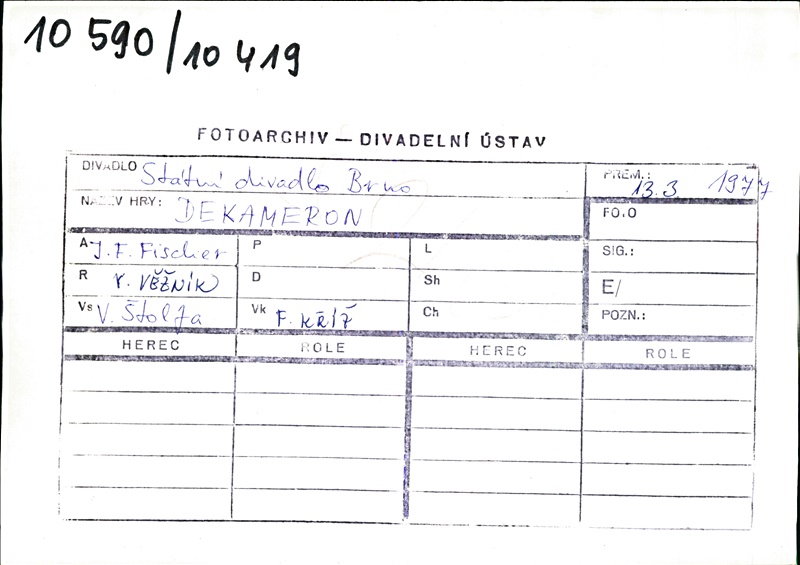 10 590/10 419
FOTOARCHIV — DIVADELNÍ ÚSTAV
DIVADLO Státní divadlo Brno
PREM.: 13.3 1977
NÁZEV HRY: DEKAMERON
FOTO
A J. F. Fischer P L SIG.:
R V. VĚŽNÍK D Sh E/
Vs V. Štolfa Vk F. KŘÍŽ Ch POZN.:
HEREC ROLE HEREC ROLE